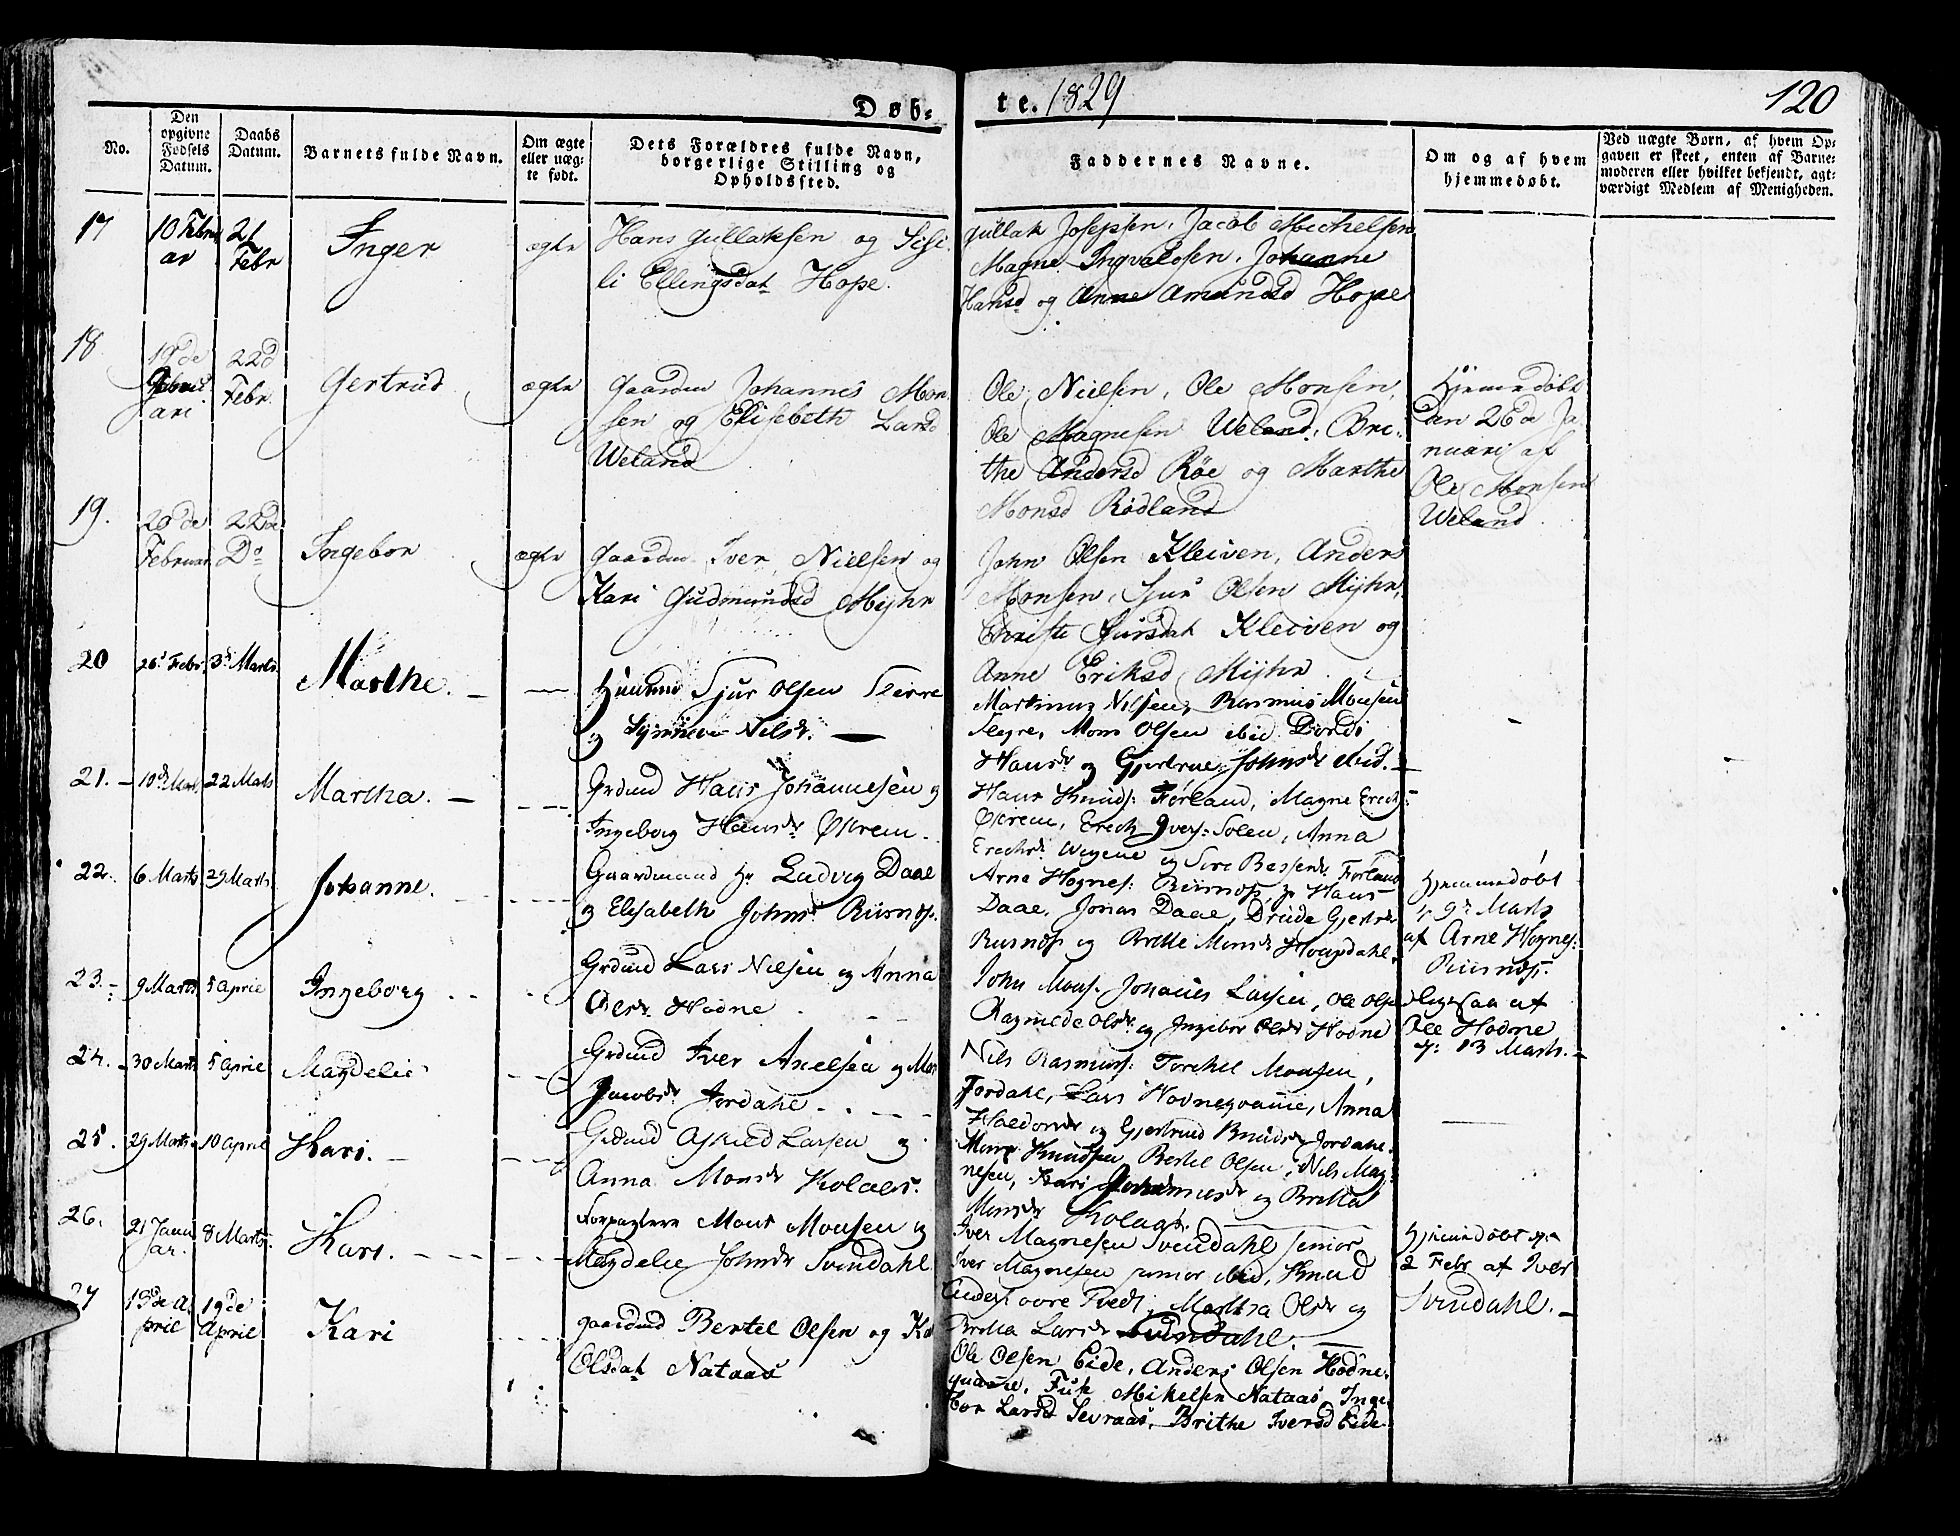 Døb-
te. 1829
120
No.
Den opgivne Fødsels Datum.
Daabs Datum.
Barnets fulde Navn.
Om ægte eller uægte født.
Dets Forældres fulde Navn, borgerlige Stilling og Opholdssted.
Faddernes Navne.
Om og af hvem hjemmedøbt.
Ved uægte Børn, af hvem Opgaven er skeet, enten af Barnemoderen eller hvilket bekjendt, agtværdigt Medlem af Menigheden.
17
10 Febru
ar
21
Febr
Inger
ægte
Hans Gullaksen og Sisi
li Ellingsdat Hope.
Gullak Josepsen, Jacob Mechelsen
Magne Ingvaldsen, Johanne
Hansd og Anne Amundsd Hope
18
22d
Febr.
Gertrud
ægte
Gaardm Johannes Mon
sen og Elisebeth Larsd
Weland
Ole Nielsen, Ole Monsen,
Ole Magnesen Weland, Bri-
the Andersd Røe og Marthe
Monsd Rødland
Hjemmedøbt
den 26de Ja
nuari af
Ole Monsen
Weland
19.
20de
Februar
22de
Do
Ingebor
ægte
Gaardm Iver Nielsen og
Kari Gudmundsd Myhr
John Olsen Kleiven, Anders
Monsen, Sjur Olsen Myhr,
Christi Sjursdat Kleiven og
Anne Eriksd Myhr
20
26d Febr.
3d Marts
Marthe. —
Huusmd Sjur Olsen
og Synneve Nilsdr. —
Martinus Nilsen, Rasmus Monsen
Mons Olsen ibid. Dordi
Hansdr og Gjertrue Johnsdr ibid. —
21. —
10de Marts
22 Marts
Martha. —
Grdmd Hans Johannesen og
Ingeborg Hansdr Øxrem.
Hans Knuds: Førland, Magne Erichs:
Øxrem, Erech Ivers: Solem, Anna
Erechsdr og Sire Bessesdr Førland
22.
6 Marts
29 Marts
Johanne.
Gaardmand Hr Ludvig Daae
og Elisabeth Johnsdr Riisnøs.
Arne Hognes: Riisnøs, Hr Hans
Daae, Jonas Daae, Drude Gjertsdr
Risnøs og Britte Monsdr Hougdahl.
Hjemmedøbt
9de Marts
af Arne Hognes:
Riisnøs.
23. -
9 Marts
5 April
Ingeborg
Grdmd Lars Nilsen og Anna
Olsdr Hodne
John Mons. Johannes Larsen, Ole Olsen
Ragnilde Olsdr og Ingebor Olsdr Hodne
ligesaa af
Ole Hodne
13 Marts. —
24.
30 Marts
5 April
Magdelie
Grdmd Iver Axelsen og
Jacobsdr Jordahl
Nils Rasmuss: Torchel Monsen,
Jordahl, Lars Hovneqvamme, Anna
Haldorsdr og Gjertrud Knudsdr Jordahl.
25.
29 Marts
10 April
Kari. —
Grdmd Larsen og
Anna Monsdr Kolaas.
Mons Knudsen, Bertel Olsen, Nils Mag-
nesen, Kari Johannesdr og Britta
Monsdr Kolaas.
26.
21 Janu
ar.
8 Marts
Kari.
Forpagtere Mons Monsen og
Magdelie Johnsdr Svindahl
Iver Magnesen Svendahl senior
Iver Magnesen junior ibid, Knud
Anders: Martha Olsdr og
Britta Larsdr Svindahl. —
Hjemmedøbt
2 Febr af Iver
Svindahl. —
27
13de A
pril
19de
April
Kari
Gaardmd Bertel Olsen og
Olsdat Nataas
Ole Olsen Eide, Anders Olsen Hodne-
qvamme, Mikelsen Nataas, Inge
bor Larsd Sevraas, Brithe Iversd Eide